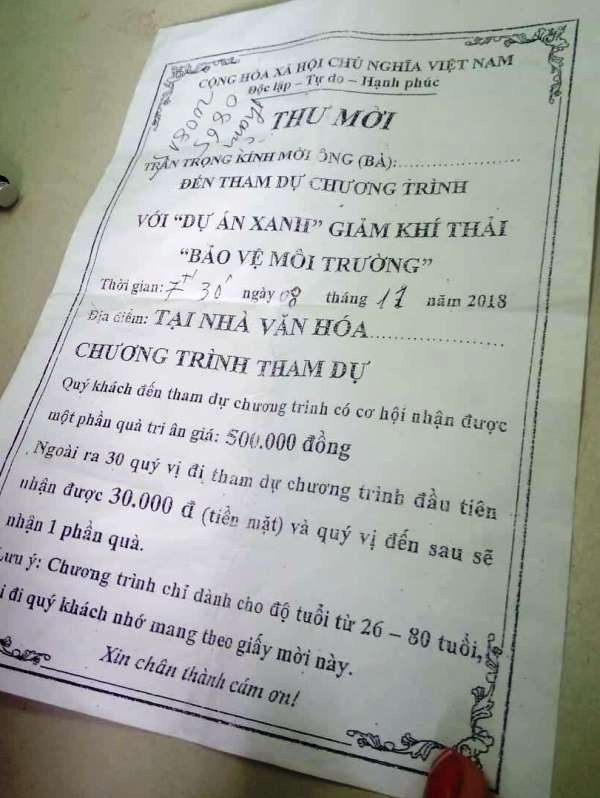 CỘNG HÒA XÃ HỘI CHỦ NGHĨA VIỆT NAM
Độc lập – Tự do – Hạnh phúc
THƯ MỜI
TRÂN TRỌNG KÍNH MỜI ÔNG (BÀ):......................
ĐẾN THAM DỰ CHƯƠNG TRÌNH
VỚI “DỰ ÁN XANH” GIẢM KHÍ THẢI
“BẢO VỆ MÔI TRƯỜNG”
Thời gian: 7h 30' ngày 08 tháng 11 năm 2018
Địa điểm: TẠI NHÀ VĂN HÓA......................
CHƯƠNG TRÌNH THAM DỰ
Quý khách đến tham dự chương trình có cơ hội nhận được
một phần quà tri ân giá: 500.000 đồng
Ngoài ra 30 quý vị đi tham dự chương trình đầu tiên
nhận được 30.000 đ (tiền mặt) và quý vị đến sau sẽ
nhận 1 phần quà.
Lưu ý: Chương trình chỉ dành cho độ tuổi từ 26 – 80 tuổi,
i đi quý khách nhớ mang theo giấy mời này.
Xin chân thành cám ơn!